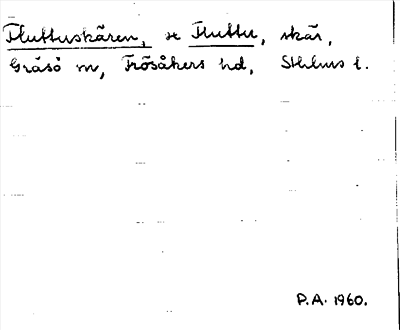 Fluttuskären, se Fluttu, skär,
Gräsö sn, Frösåkers hd, Sthlms l.
P.A. 1960.